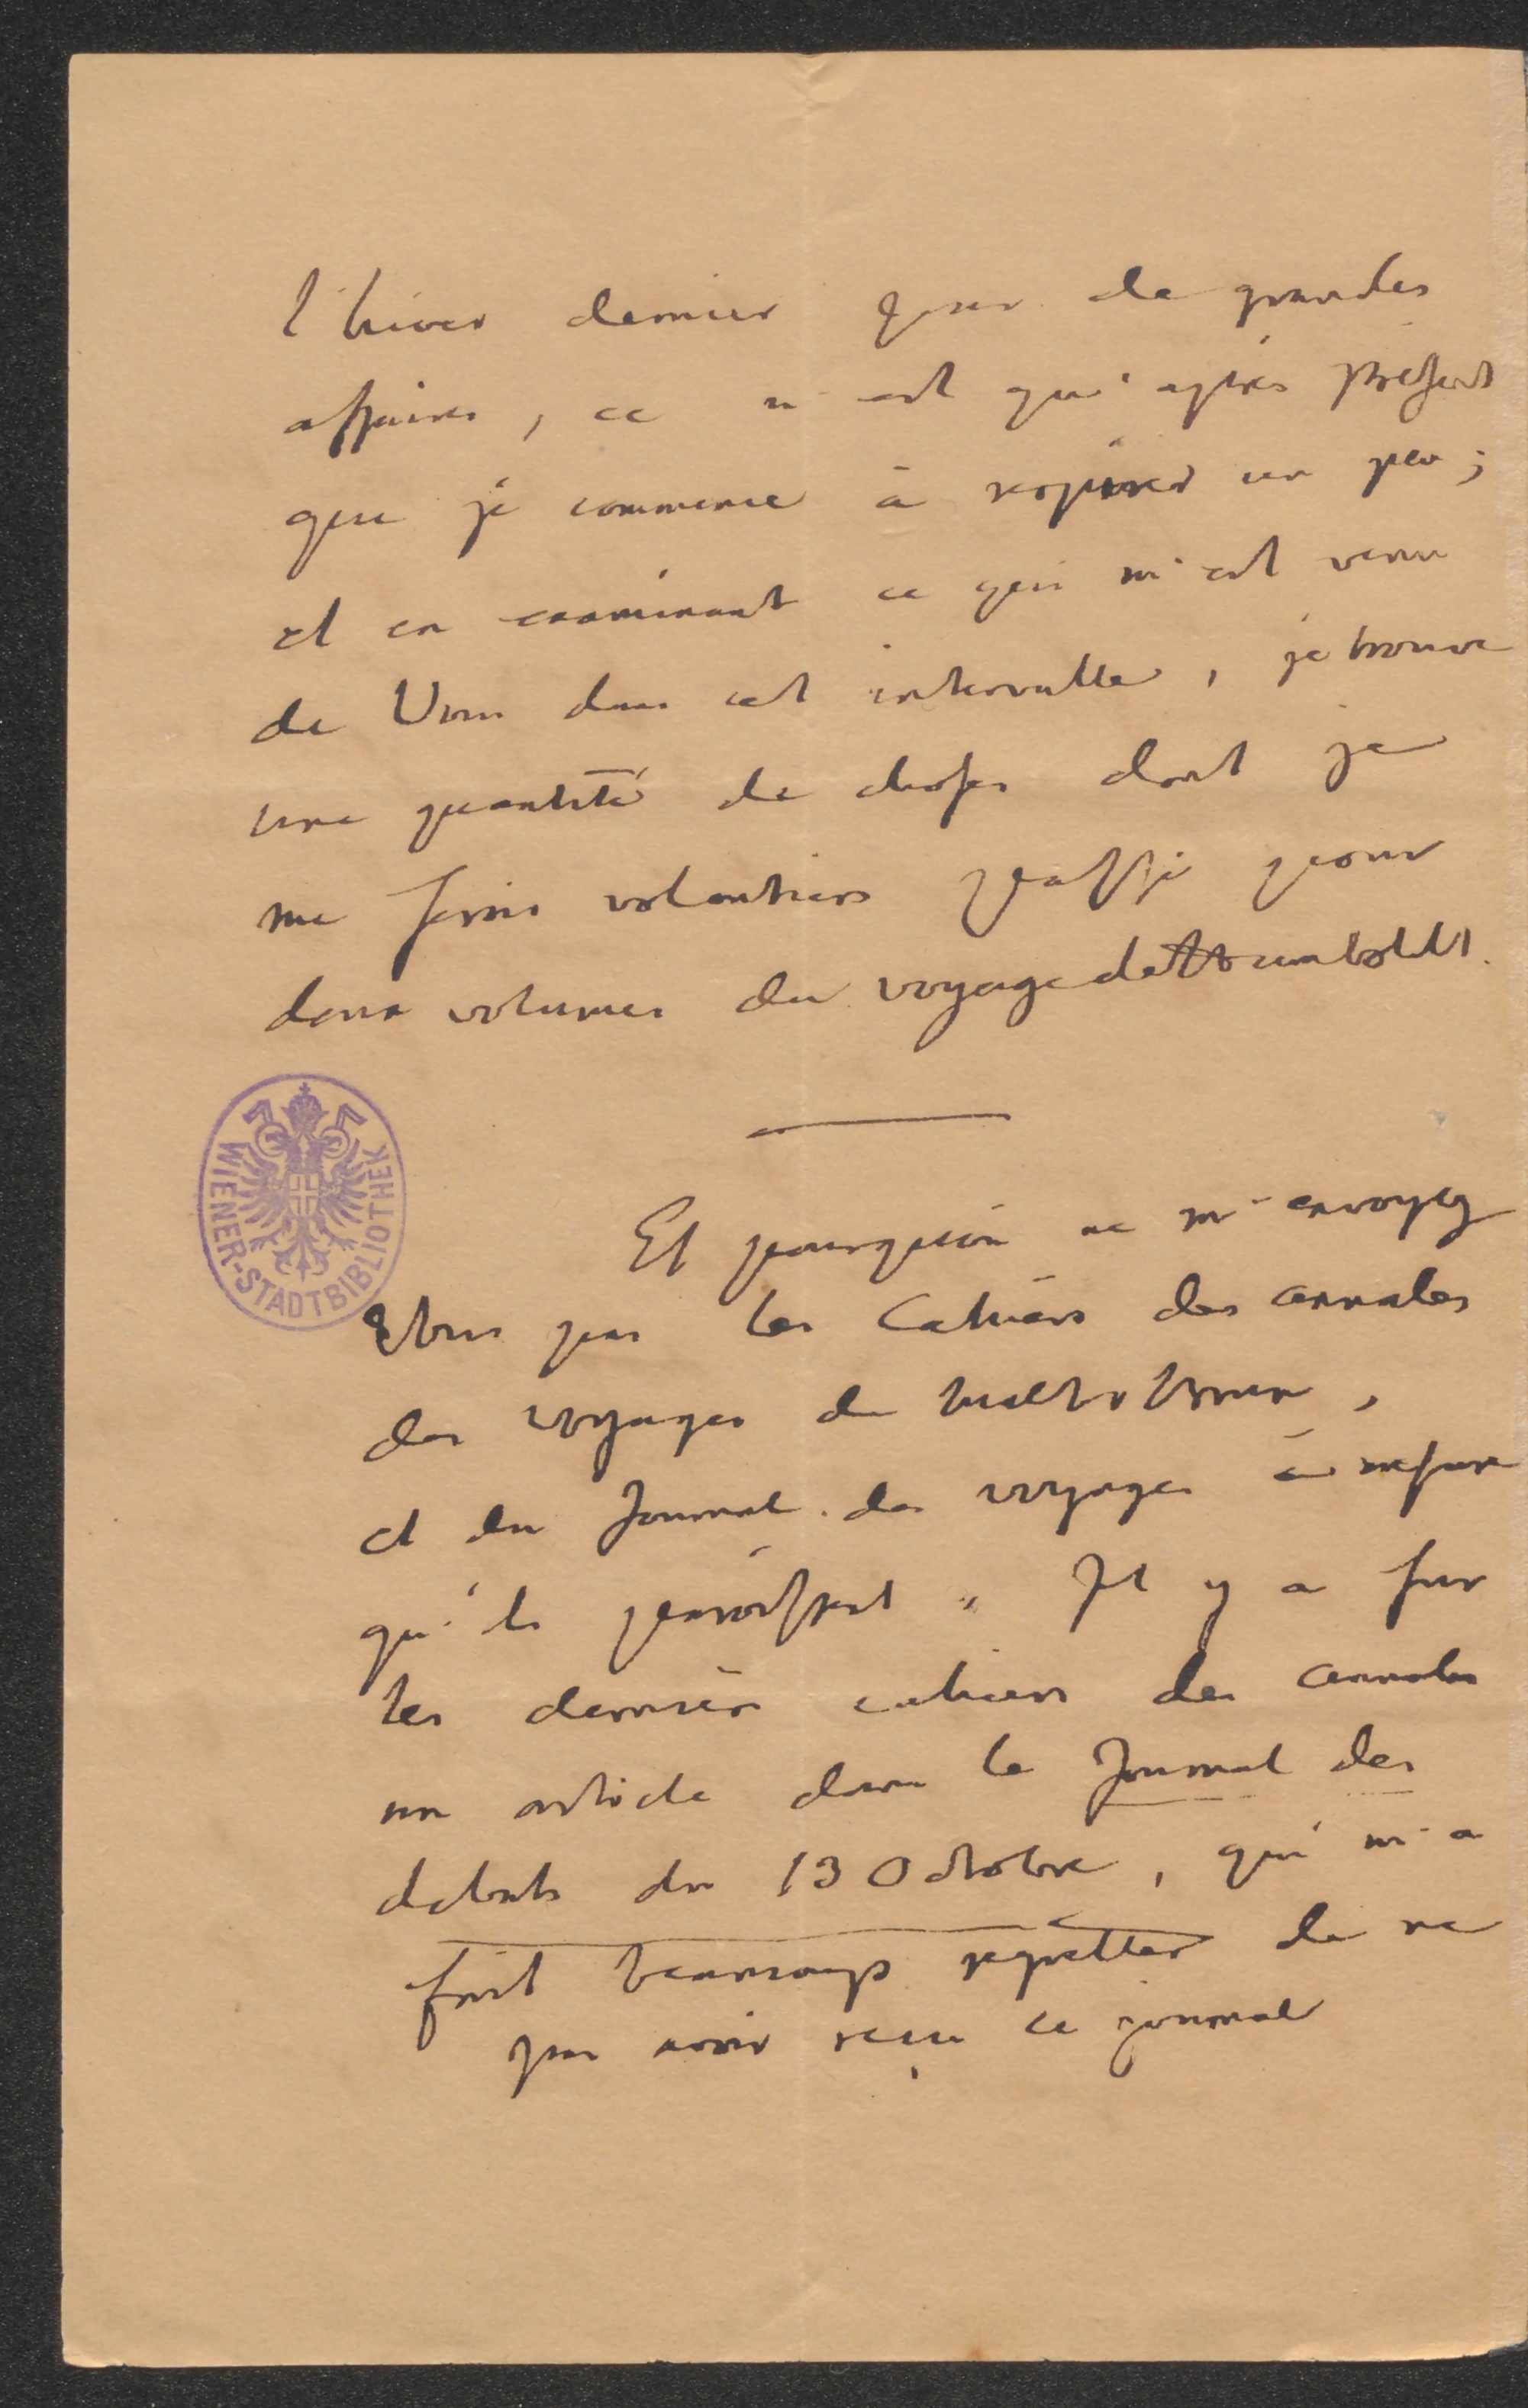 l'hiver dernier par de grandes
affaires, ce n'est qu'après présent
que je commence à respirer un peu;
et en examinant ce qui m'est venu
de Vous dans cet intervalle, je trouve
une quantité de choses dont je
me serois volontiers passé pour
deux volumes du voyage de Humboldt.
Et pourquoi ne m'envoyez
Vous pas les Cahiers des annales
des voyages de Malte Brun,
et du Journal des voyages à mesure
qu'ils paroissent. Il y a sur
les derniers cahiers des annales
un article dans le Journal des
debats du 13 Octobre, qui m'a
fait beaucoup regretter de ne
pas avoir reçu ce journal
WIENER-STADTBIBLIOTHEK